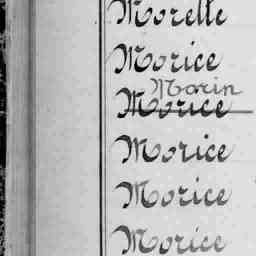 Morelle
Morice
Morin
Morice
Morice
Morice
Morice